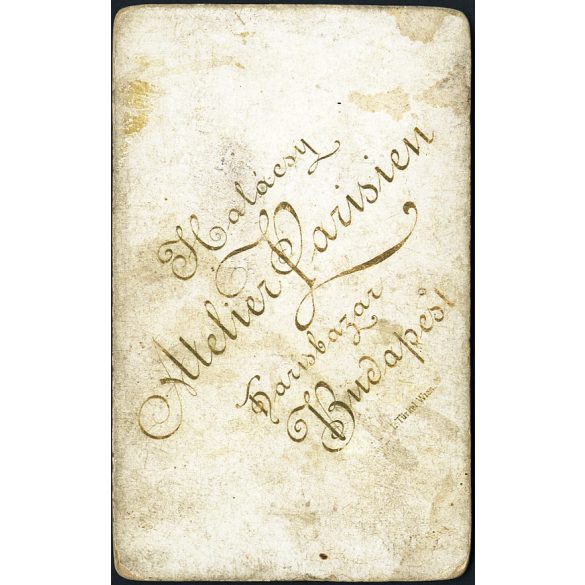 Halácsy
Atelier Parisien
Harisbazar
Budapest